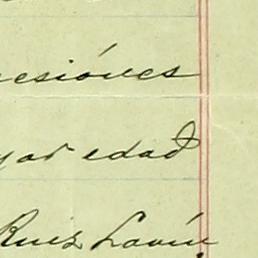 esiónes
yor edad
Ruiz Lavín